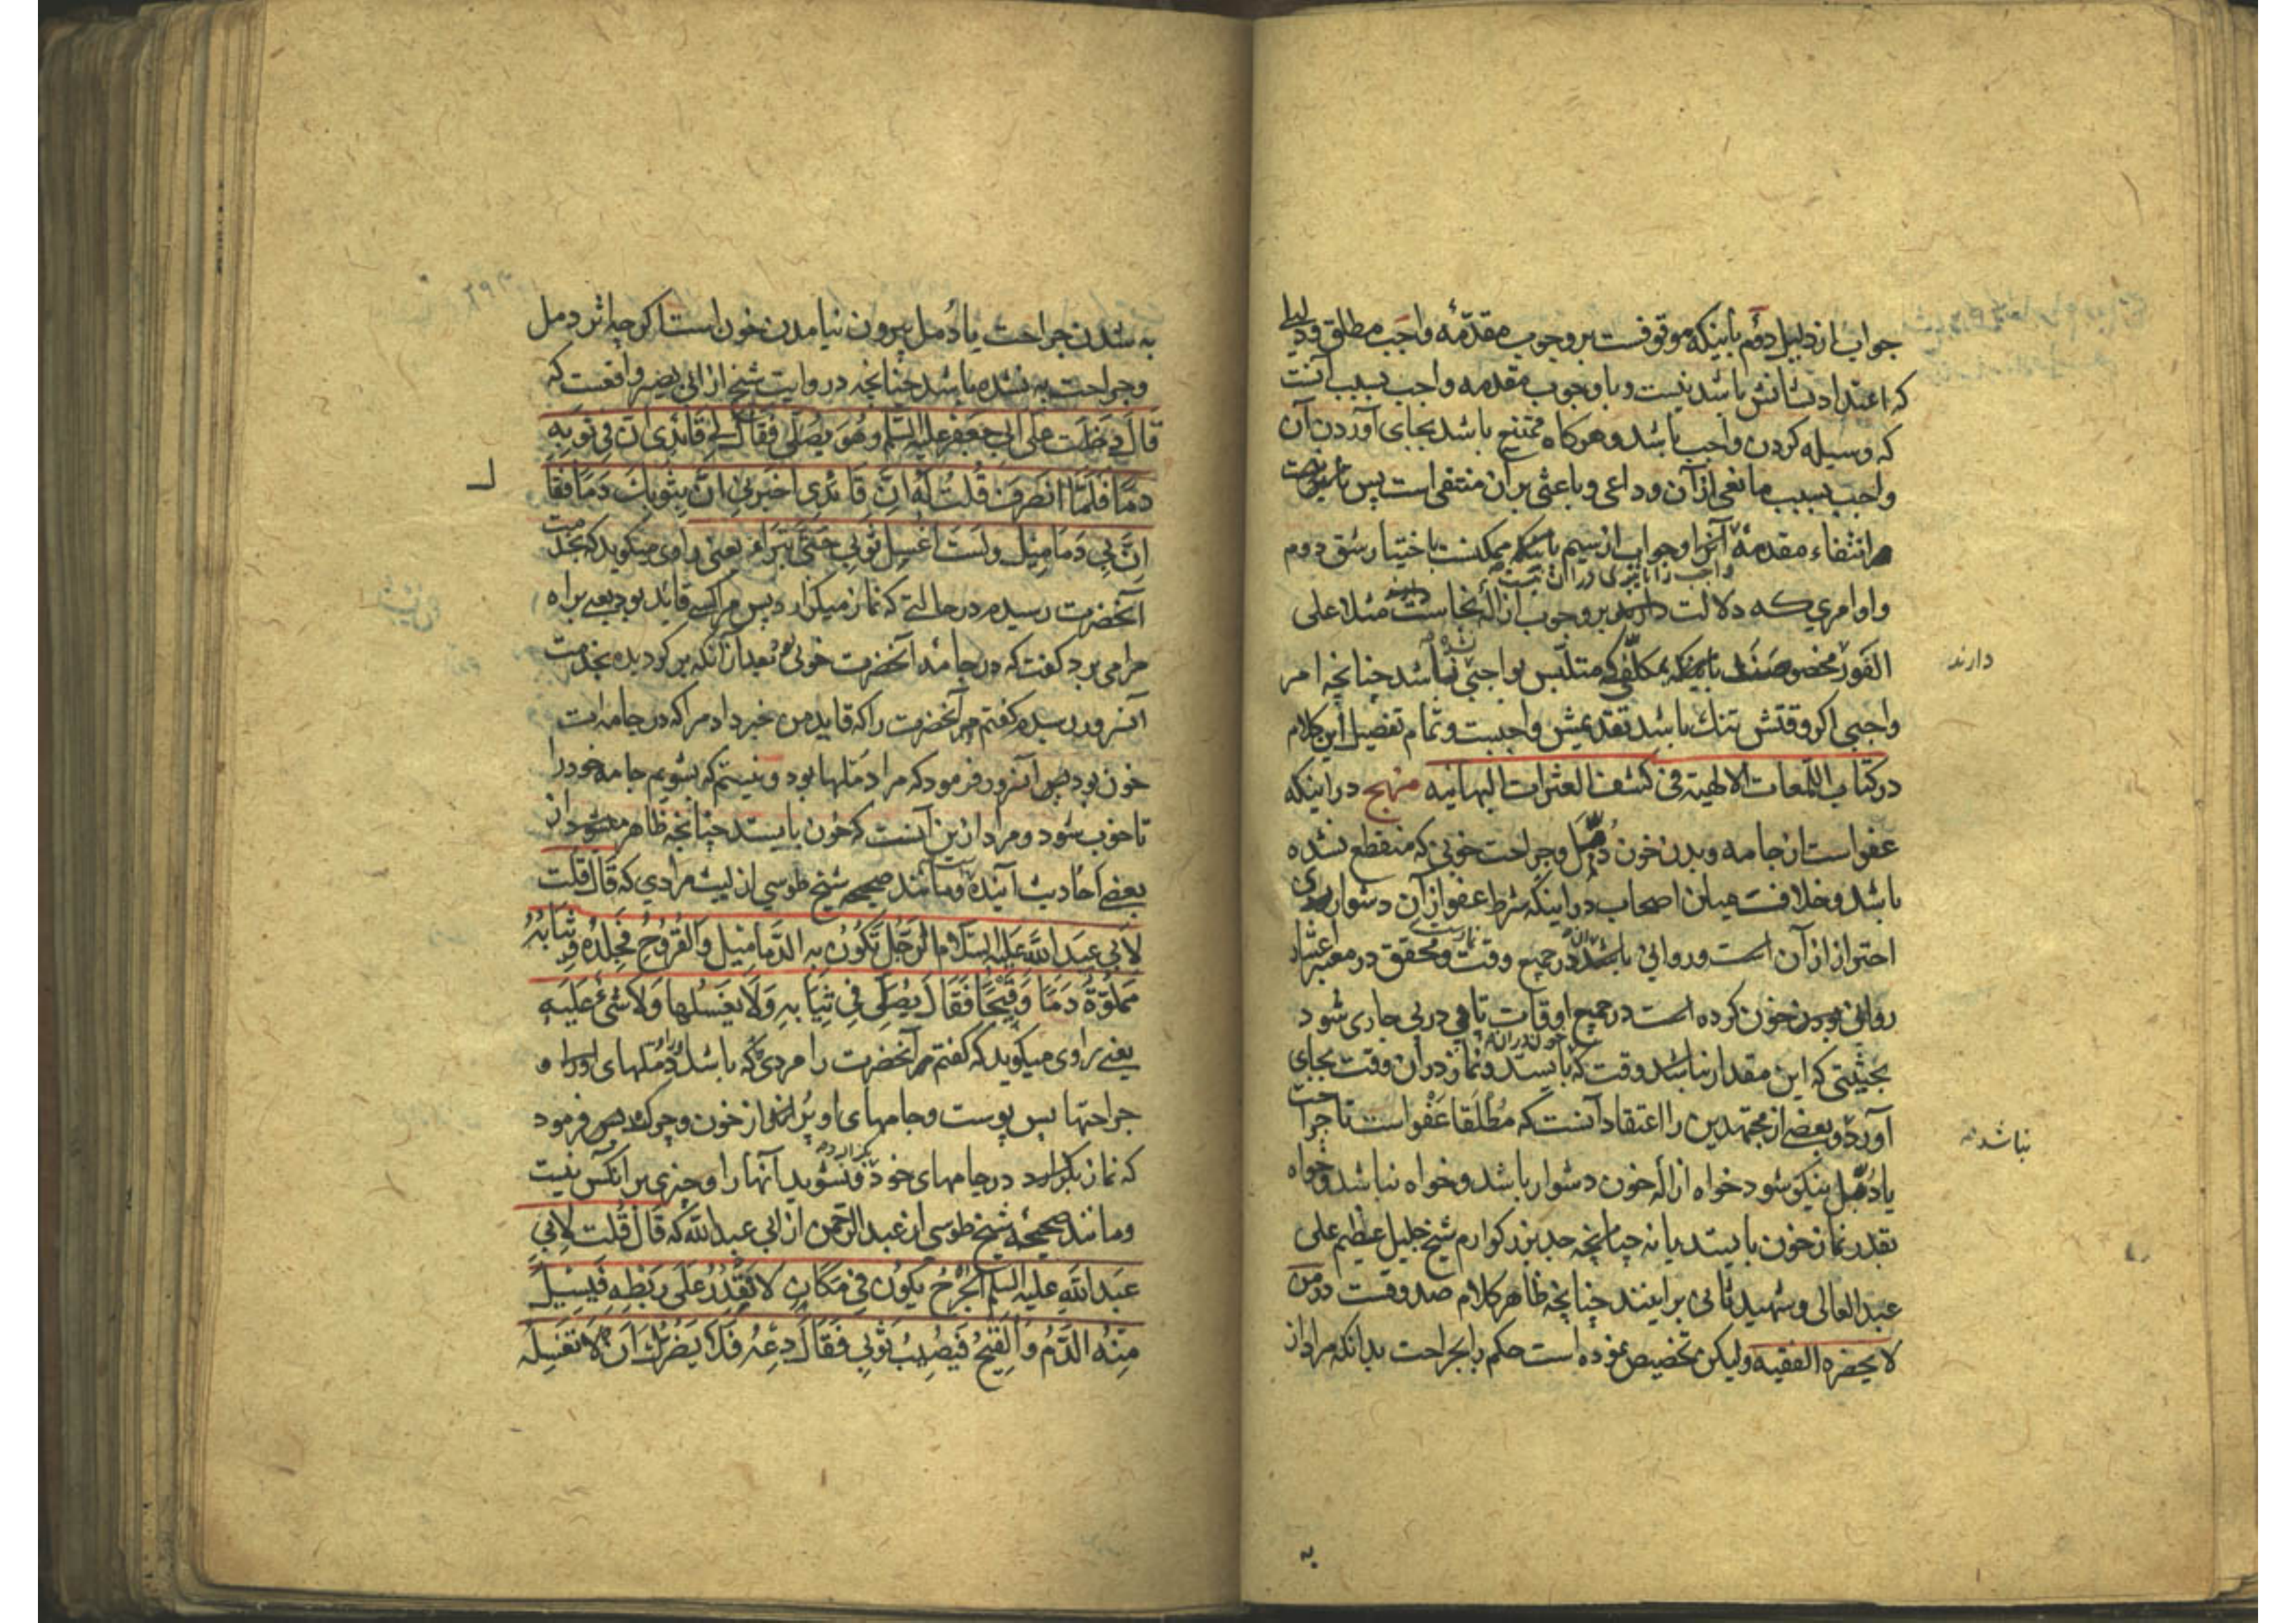 جواب از دلیل دوم باینکه موقوفست بر وجوب مقدمه واجب مطلق و دلیلی
که اعتداد بشانش باشد نیست و با وجوب مقدمه واجب بسبب آنست
که وسیله کردن واجب باشد و هرکاه ممتنع باشد بجای آوردن آن
واجب بسبب مانعی از آن و داعی و باعثی بر آن منتفی است پس
انتفاء مقدمهٔ آن و جواب از سیم باینکه ممکنست باختیار شق دوم
و اوامری که دلالت دارند بر وجوب ازالهٔ نجاست مثلا علی
الفور مخصوصند باینکه مکلف متلبس بواجبی نباشد چنانچه امر
دارند
واجبی اکر وقتش تنك باشد تقدیمش واجبست و تمام تفصیل این کلام
در کتاب اللمعات الالهیة فی کشف العثرات البهائیه منهج در اینکه
عفو است از جامه و بدن خون دمل و جراحت خونی که منقطع نشده
باشد و خلافست میان اصحاب در اینکه شرط عفو از آن دشواری
احتراز از آن است و روانی باشد در جمیع وقت و محقق در معتبر اعتبار
روانی بودن خون کرده است در جمیع اوقات تا پی در پی جاری شود
بحیثیتی که این مقدار نباشد وقت که بایستد و نماز در آن وقت بجای
آورد و بعضی از مجتهدین را اعتقاد آنست که مطلقا عفو است تا جراحت
نباشد
یا دمل نیکو شود خواه ازاله خون دشوار باشد و خواه نباشد و خواه
بقدر نماز خون بایستد یا نه چنانچه جد بزرکوارم شیخ جلیل عظیم علی
عبد العالی و شهید ثانی بر اینند چنانچه ظاهر کلام صدوقست در من
لا یحضره الفقیه ولیکن تخصیص نموده است حکم را بجراحت بدانکه مراد از
به
به شدن جراحت یا دُمل بیرون نیامدن خون است اکرچه اثر دمل
و جراحت به نشده باشد چنانچه در روایت شیخ از ابی بصیر واقعست که
قال دخلت علی ابی جعفر علیه السلم و هو یصلی فقال لی قائدی ان فی ثوبه
دما فلما انصرف قلت له ان قائدی اخبرنی ان بثوبك دما فقا
ان بی دمامیل و لست اغسل ثوبی حتی تبراء یعنی راوی میکوید که بخدمت
آنحضرت رسیدم در حالتی که نماز میکزارد پس مرا کسی قاید بود یعنی براه
مرا می برد کفت که در جامهٔ آنحضرت خونی بعد از آنکه بر کردیده بخدمت
آنسرور رسیدم کفتم مر آنحضرت را که قاید من خبر داد مرا که در جامه ات
خون بود پس آنسرور فرمود که مرا دملها بود و نیستم که بشویم جامه خود را
تا خوب شود و مراد از بن آنست که خون بایستد چنانچه ظاهر میشود از
بعضی احادیث آینده و مانند صحیحه شیخ طوسی از لیث مرادی که قال قلت
لابی عبد الله علیه السلام الرجل تکون به الدمامیل و القروح فجلده و ثیابه
مملوة دما و قیحا فقال یصلی فی ثیابه و لا یغسلها و لا شیء علیه
یعنی راوی میکوید که کفتم مر آنحضرت را مردی که باشد دملهای او را و
جراحتها پس پوست و جامهای او پر از خون و چرك پس فرمود
که نماز بکزارد در جامهای خود و نشوید آنها را و چیزی بر آنکس نیست
و مانند صحیحهٔ شیخ طوسی از عبد الرحمن از ابی عبد الله که قال قلت لابی
عبد الله علیه السلم الجرح یکون فی مکان لا تقدر علی ربطه فیسیل
منه الدم و القیح فیصیب ثوبی فقال دعه فلا یضرك ان لا تغسله